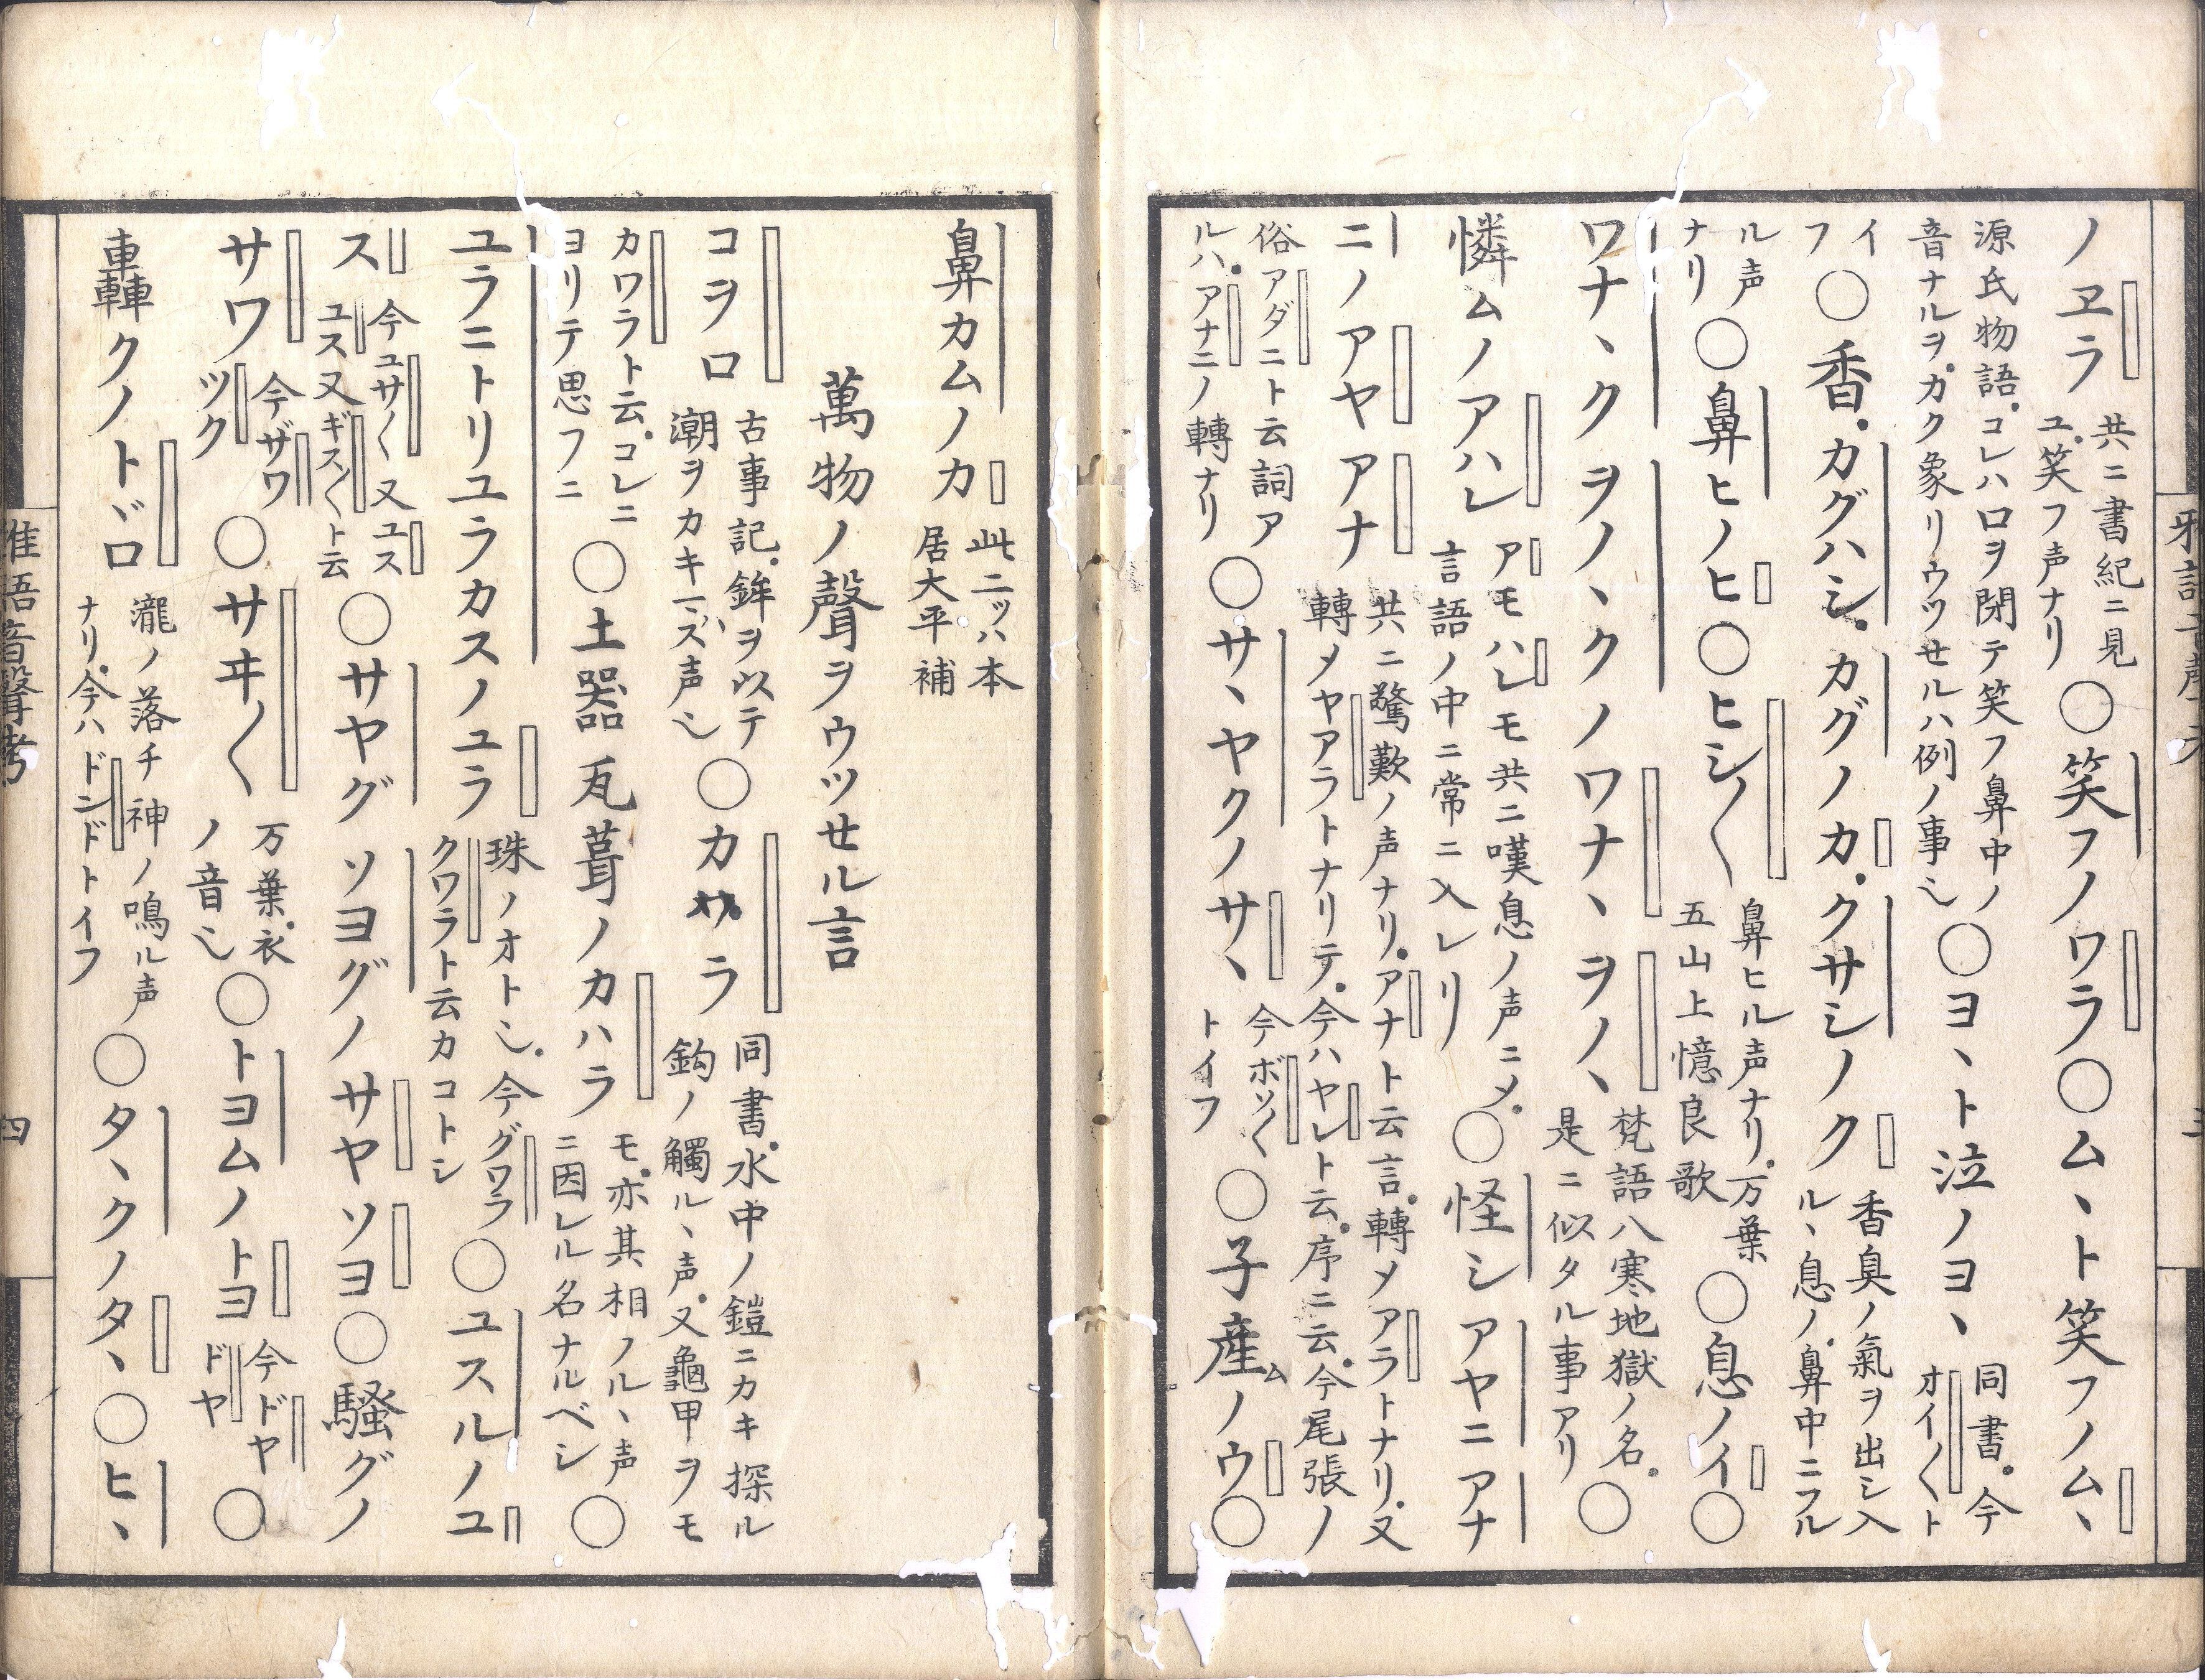 ノヱラ 共ニ書紀ニ見ユ。笑フ声ナリ ○笑フノワラ○ム丶ト笑フノム丶
源氏物語。コレハ口ヲ閉テ笑フ鼻中ノ音ナルヲ。カク象リウツセルハ例ノ事也 ○ヨ丶ト泣ノヨ丶 同書。今オイ〳〵トイフ
○香。カグハシ。カグノカ。クサシノク 香臭ノ氣ヲ出シ入ル丶息ノ。鼻中ニフルル声ナリ
○鼻ヒノヒ○ヒシ〳〵 鼻ヒル声ナリ。万葉五山上憶良歌 ○息ノイ○
ワナ丶クヲノ丶クノワナ丶ヲノ丶 梵語八寒地獄ノ名。是ニ似タル事アリ ○
憐ムノアハレ アモハレモ共ニ嘆息ノ声ニメ。言語ノ中ニ常ニ入レリ ○怪シアヤニアナ
ニノアヤアナ 共ニ驚歎ノ声ナリ。アナト云言。轉メアラトナリ。又轉メヤアラトナリテ。今ハヤレト云。序ニ云。今尾張ノ
俗アダニト云詞アルハ。アナニノ轉ナリ ○サ丶ヤクノサ丶 今ボソ〳〵トイフ ○子産ムノウ○
雅語音聲考
三
鼻カムノカ 此二ッハ本居大平補
萬物ノ聲ヲウツセル言
コヲロ 古事記。鉾ヲ以テ潮ヲカキナス声也 ○カワラ 同書。水中ノ鎧ニカキ探ル鈎ノ觸ル丶声。又龜甲ヲモ
カワラト云。コレニヨリテ思フニ ○土器瓦葺ノカハラ モ。亦其相ノル丶声ニ因レル名ナルベシ ○
ユラニトリユラカスノユラ 珠ノオト也。今グワラクワラト云カコトシ ○ユスルノユ
ス 今ユサ〳〵又ユスユス又ギス〳〵ト云 ○サヤグソヨグノサヤソヨ○騒グノ
サワ 今ザワツク ○サヰ〳〵 万葉。衣ノ音也 ○トヨムノトヨ 今ドヤドヤ ○
轟クノトヾロ 瀧ノ落チ神ノ鳴ル声ナリ。今ハドンドトイフ ○タ丶クノタ丶○ヒ丶
雅語音聲考
四